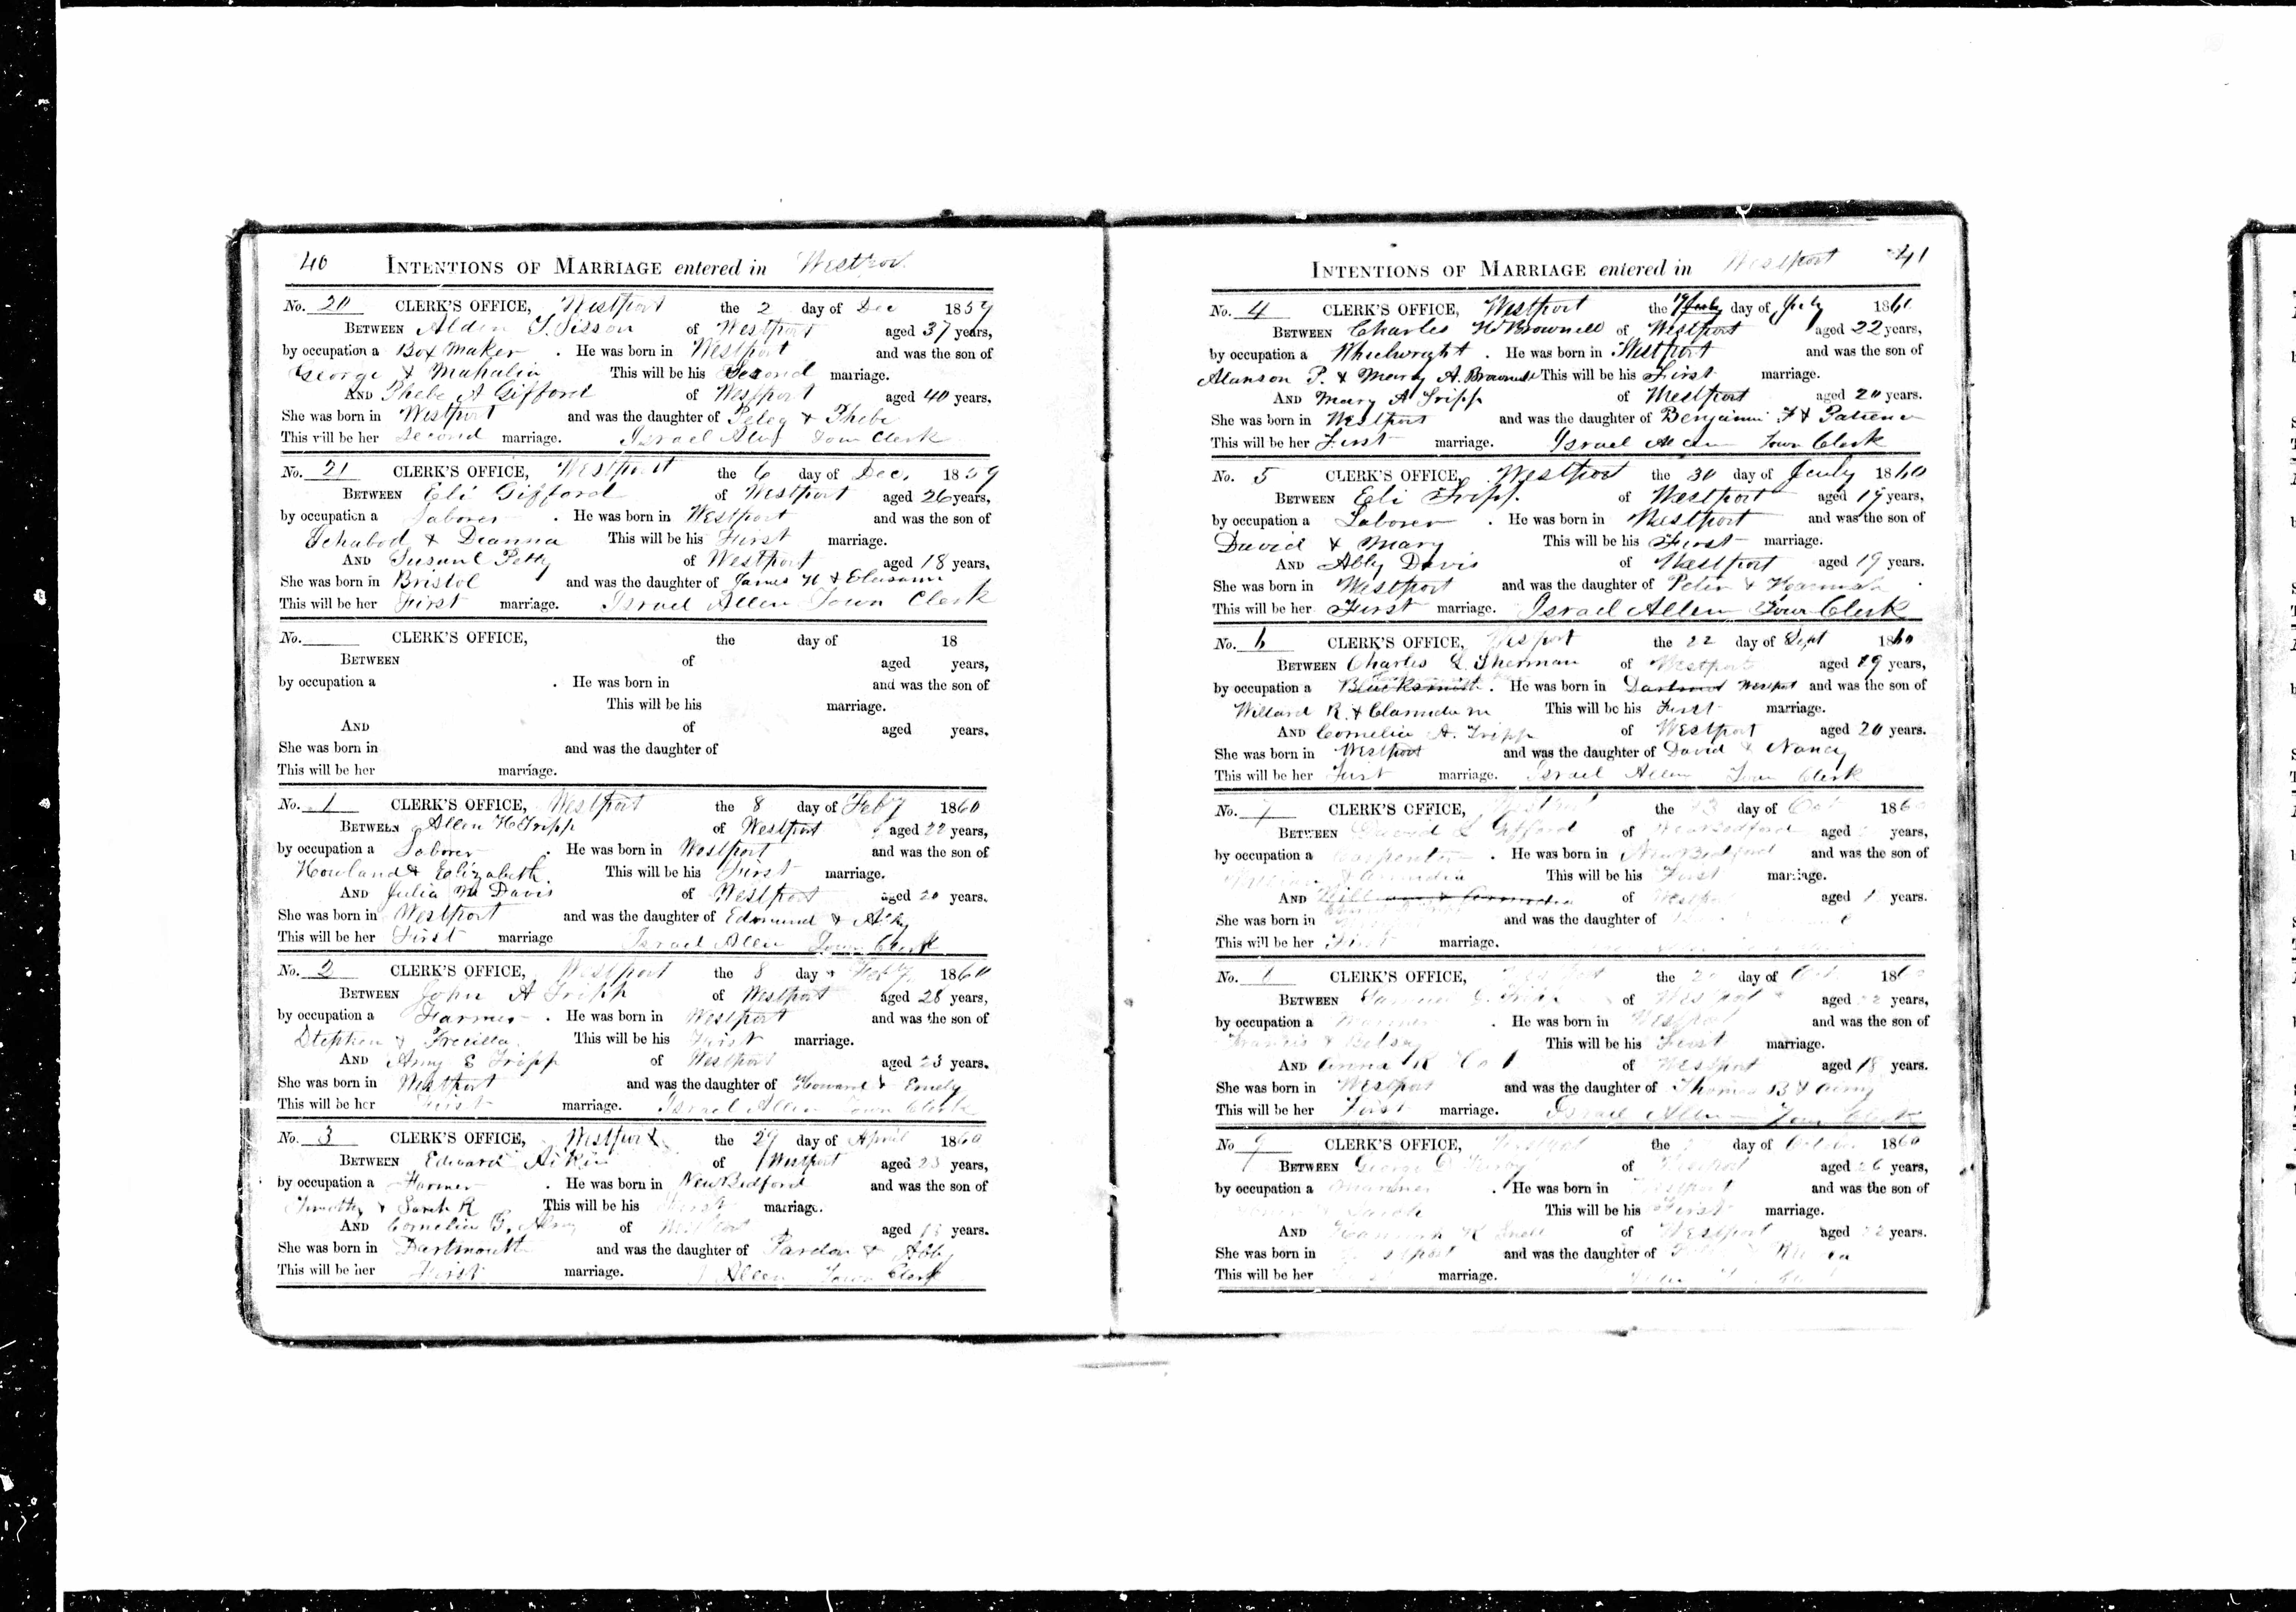 40 INTENTIONS OF MARRIAGE entered in Westport
No. 20 CLERK'S OFFICE, Westport the 2 day of Dec 1859
BETWEEN Alden T. Sisson of Westport aged 37 years,
by occupation a Box Maker. He was born in Westport and was the son of
George & Mahalia This will be his Second marriage.
AND Phebe A Gifford of Westport aged 40 years.
She was born in Westport and was the daughter of Peleg & Phebe
This will be her Second marriage. Israel Town Clerk
No. 21 CLERK'S OFFICE, Westport the 6 day of Dec. 1859
BETWEEN Eli Gifford of Westport aged 26 years,
by occupation a Laborer. He was born in Westport and was the son of
Ichabod & Deanna This will be his First marriage.
AND Petty of Westport aged 18 years.
She was born in Bristol and was the daughter of James H &
This will be her First marriage. Israel Allen Town Clerk
No. CLERK'S OFFICE, the day of 18
BETWEEN of aged years,
by occupation a . He was born in and was the son of
This will be his marriage.
AND of aged years.
She was born in and was the daughter of
This will be her marriage.
No. 1 CLERK'S OFFICE, Westport the 8 day of Feby 1860
BETWEEN Allen H Tripp of Westport aged 22 years,
by occupation a Laborer. He was born in Westport and was the son of
Howland & Elizabeth. This will be his First marriage.
AND Julia M Davis of Westport aged 20 years.
She was born in Westport and was the daughter of Edmund &
This will be her First marriage Israel Allen Town Clerk
No. 2 CLERK'S OFFICE, Westport the 8 day Feby 1860
BETWEEN John A Tripp of Westport aged 28 years,
by occupation a Farmer. He was born in Westport and was the son of
Stephen & This will be his First marriage.
AND Amy E Tripp of Westport aged 23 years.
She was born in Westport and was the daughter of Howard & Emely
This will be her First marriage. Israel Allen Town Clerk
No. 3 CLERK'S OFFICE, Westport the 29 day of April 1860
BETWEEN Edward Aikin of Westport aged 23 years,
by occupation a Farmer. He was born in New Bedford and was the son of
Timothy & Sarah R This will be his First marriage.
AND Cornelia of Westport aged years.
She was born in Dartmouth and was the daughter of Pardon & Abby
This will be her First marriage. Allen Town Clerk
INTENTIONS OF MARRIAGE entered in Westport 41
No. 4 CLERK'S OFFICE, Westport the 19 day of July 1860
BETWEEN Charles H Brownell of Westport aged 22 years,
by occupation a Wheelwright. He was born in Westport and was the son of
Alanson P. & Mary A. Brownell This will be his First marriage.
AND Mary A Tripp of Westport aged 20 years.
She was born in Westport and was the daughter of Benjamin F & Patience
This will be her First marriage. Israel Allen Town Clerk
No. 5 CLERK'S OFFICE, Westport the 30 day of July 1860
BETWEEN Eli Tripp. of Westport aged 19 years,
by occupation a Laborer. He was born in Westport and was the son of
David & Mary This will be his First marriage.
AND Abby Davis of Westport aged 19 years.
She was born in Westport and was the daughter of Peter & Hannah
This will be her First marriage. Israel Allen Town Clerk
No. 6 CLERK'S OFFICE, Westport the 22 day of Sept 1860
BETWEEN Charles L. Sherman of Westport aged 19 years,
by occupation a Blacksmith. He was born in Dartmouth Westport and was the son of
Willard R. & This will be his First marriage.
AND Cornelia A. Tripp of Westport aged 20 years.
She was born in Westport and was the daughter of David & Nancy
This will be her First marriage. Israel Allen Town Clerk
No. 7 CLERK'S OFFICE, Westport the day of Oct 1860
BETWEEN David L Gifford of New Bedford aged years,
by occupation a Carpenter. He was born in New Bedford and was the son of
This will be his First marriage.
AND of Westport aged years.
She was born in and was the daughter of
This will be her First marriage.
No. CLERK'S OFFICE, Westport the day of Oct 186
BETWEEN of Westport aged years,
by occupation a Mariner. He was born in Westport and was the son of
Francis & Betsey This will be his First marriage.
AND R of Westport aged 18 years.
She was born in Westport and was the daughter of Thomas B & Amy
This will be her First marriage. Israel Allen Town Clerk
No 9 CLERK'S OFFICE, Westport the day of October 1860
BETWEEN George D of Westport aged 26 years,
by occupation a . He was born in Westport and was the son of
Sarah This will be his First marriage.
AND Hannah K Snell of Westport aged years.
She was born in Westport and was the daughter of
This will be her marriage.